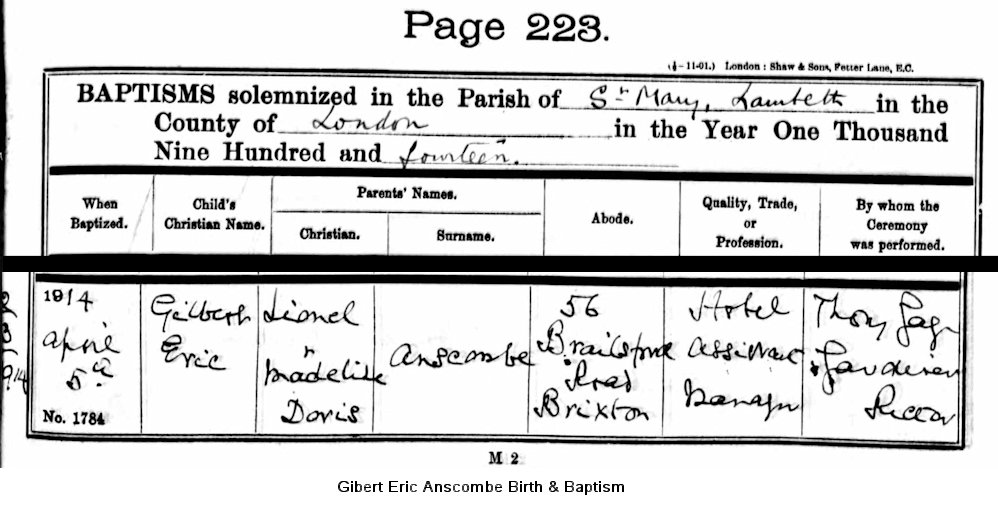 Page 223.
(½-11-01.) London: Shaw & Sons, Fetter Lane, E.C.
BAPTISMS solemnized in the Parish of St Mary, Lambeth in the
County of London in the Year One Thousand
Nine Hundred and fourteen.
When Baptized.
Child's Christian Name.
Parents' Names.
Christian.
Surname.
Abode.
Quality, Trade, or Profession.
By whom the Ceremony was performed.
1914
April
5th
No. 1784
Gilbert
Eric
Lionel
Madeline
Doris
Anscombe
56
Brailsford
Road
Brixton
Hotel
Assistant
Manager
Rector
M 2
Gibert Eric Anscombe Birth & Baptism